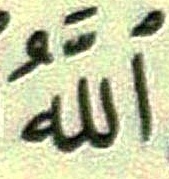 اُللَّهُ